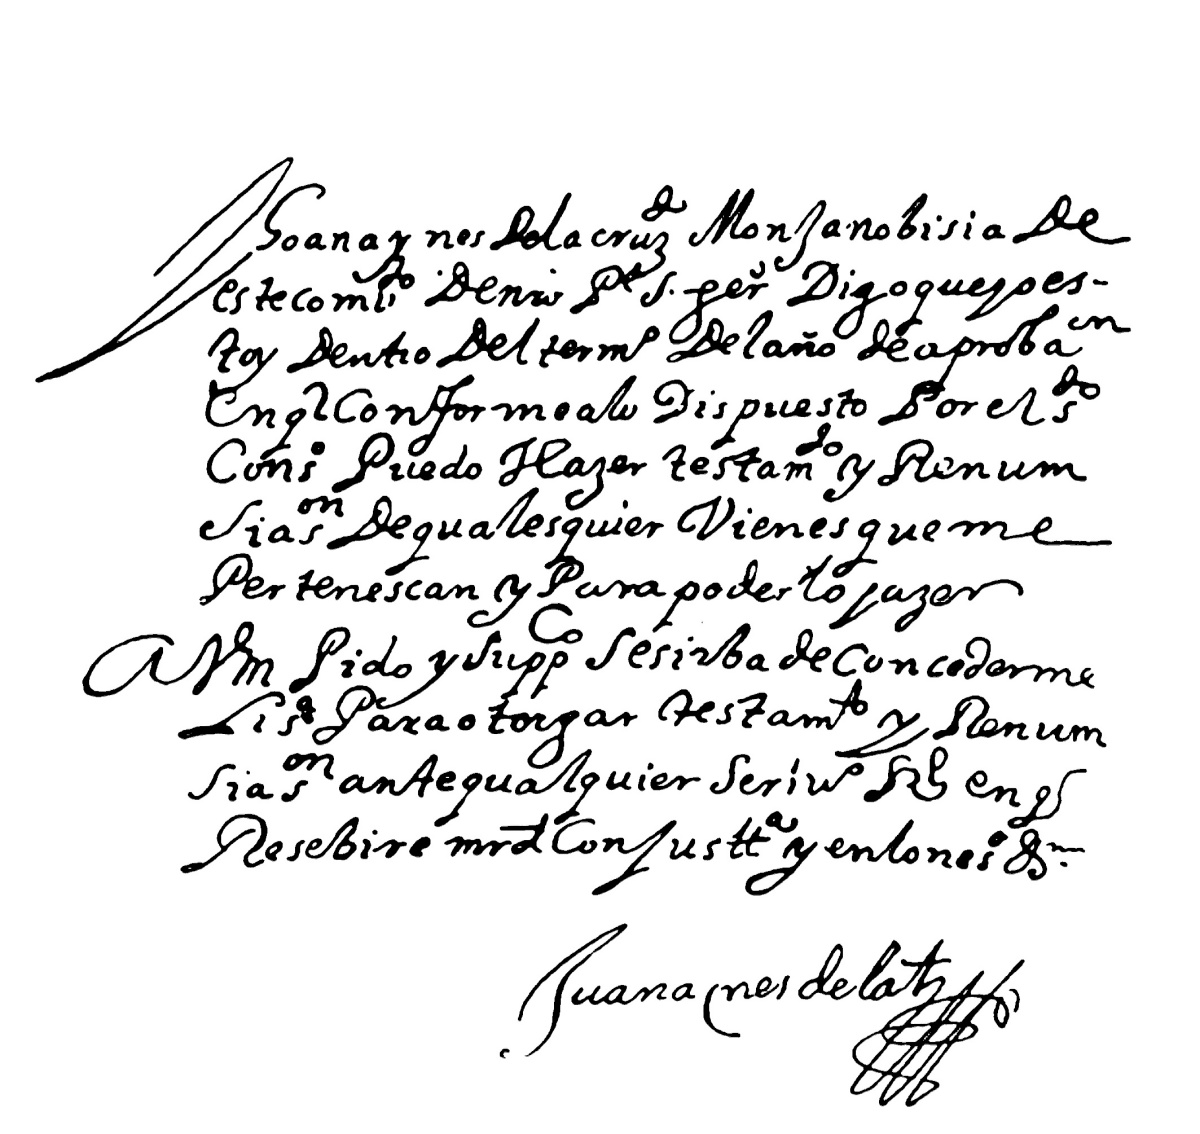 Joana ynes de la cruz Monja nobisia De
este comto De nro Pe S. germo Digo que yo es-
toy Dentro Del termo Del año de aprobaon
En ql Conforme a lo Dispuesto Por el sdo
Conso Puedo Hazer testamdo y Renum
siason De qualesquier Vienes que me
Pertenescan y Para poderlo jazer
A Vm Pido y suppco se sirba de Concederme
Lisa Para otorgar testamto y Renum
siason ante qualquier Scrivo Rl en q
Resebire mrd Con Justta y en lo neso &
Juana ynes de la +